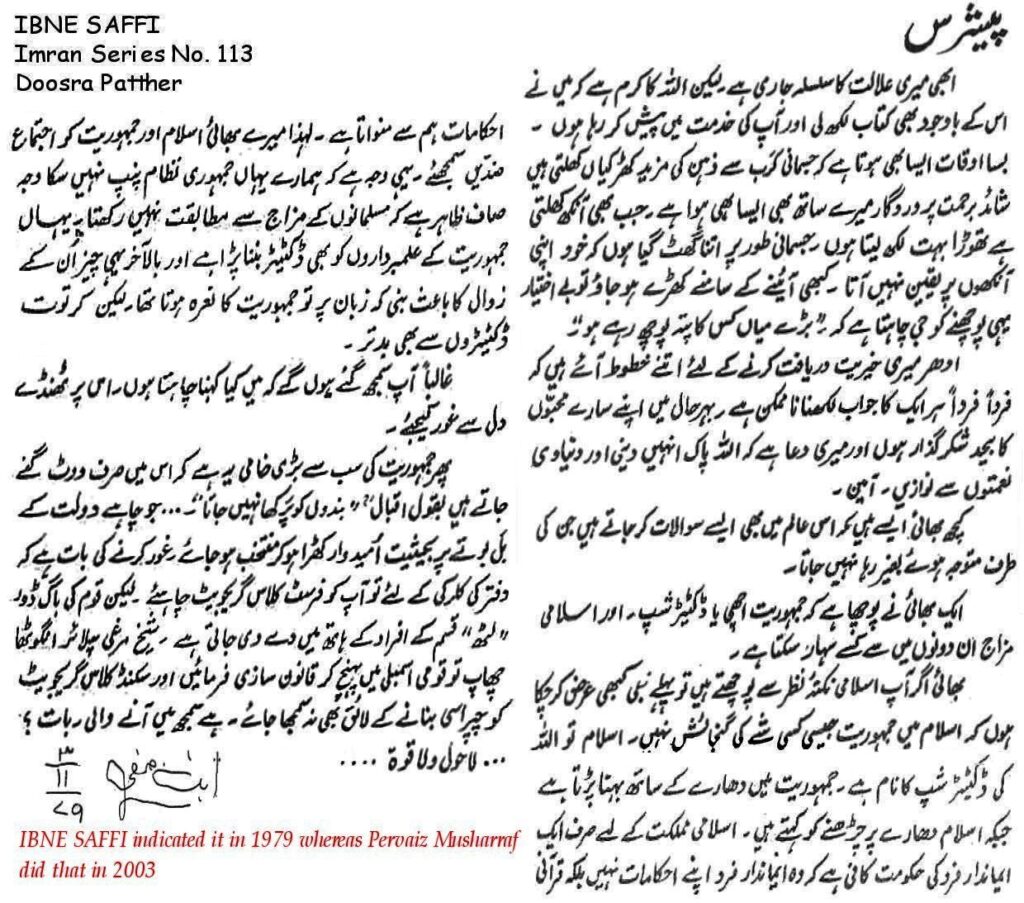 IBNE SAFFI
Imran Series No. 113
Doosra Patther
پیشرس
ابھی میری علالت کا سلسلہ جاری ہے۔ لیکن اللہ کا کرم ہے کہ میں نے
اس کے باوجود بھی کتاب لکھ لی اور آپ کی خدمت میں پیش کر رہا ہوں ۔
بسا اوقات ایسا بھی ہوتا ہے کہ جسمانی کرب سے ذہن کی مزید کھڑکیاں کھلتی ہیں
شائد برحمت پروردگار میرے ساتھ بھی ایسا ہی ہوا ہے۔ جب بھی آنکھ کھلتی
ہے تھوڑا بہت لکھ لیتا ہوں ۔ جسمانی طور پر اتنا گھٹ گیا ہوں کہ خود اپنی
آنکھوں پر یقین نہیں آتا ۔ کبھی آئینے کے سامنے کھڑے ہو جاؤ تو بے اختیار
یہی پوچھنے کو جی چاہتا ہے کہ ۔ "بڑے میاں کس کا پتہ پوچھ رہے ہو"۔
اودھر میری خیریت دریافت کرنے کے لئے اتنے خطوط آئے ہیں کہ
فرداً فرداً ہر ایک کا جواب لکھنا ناممکن ہے ۔ بہرحال میں اپنے سارے محبّوں
کا بیحد شکر گذار ہوں اور میری دعا ہے کہ اللہ پاک انہیں دینی اور دنیاوی
نعمتوں سے نوازیں ۔ آمین ۔
کچھ بھائی ایسے ہیں کہ اس عالم میں بھی ایسے سوالات کر جاتے ہیں جن کی
طرف متوجہ ہوئے بغیر رہا نہیں جاتا ۔
ایک بھائی نے پوچھا ہے کہ جمہوریت اچھی یا ڈکٹیٹر شپ ۔ اور اسلامی
مزاج ان دونوں میں سے کسے سہار سکتا ہے ۔
بھائی اگر آپ اسلامی نکتہ نظر سے پوچھتے ہیں تو پہلے بھی کبھی عرض کر چکا
ہوں کہ اسلام میں جمہوریت جیسی کسی شے کی گنجائش نہیں ۔ اسلام تو اللہ
کی ڈکٹیٹر شپ کا نام ہے ۔ جمہوریت میں دھارے کے ساتھ بہنا پڑتا ہے
جبکہ اسلام دھارے پر چڑھنے کو کہتے ہیں ۔ اسلامی مملکت کے لیے صرف ایک
ایماندار فرد کی حکومت کافی ہے کہ وہ ایماندار فرد اپنے احکامات نہیں بلکہ قرآنی
احکامات ہم سے منواتا ہے ۔ لہذا میرے بھائی اسلام اور جمہوریت کو اجتماع
ضدّین سمجھئے ۔ یہی وجہ ہے کہ ہمارے یہاں جمہوری نظام پنپ نہیں سکا وجہ
صاف ظاہر ہے کہ مسلمانوں کے مزاج سے مطابقت نہیں رکھتا ۔ یہاں
جمہوریت کے علمبرداروں کو بھی ڈکٹیٹر بننا پڑا ہے اور بالآخر یہی چیز اُن کے
زوال کا باعث بنی کہ زبان پر تو جمہوریت کا نعرہ ہوتا تھا ۔ لیکن کرتوت
ڈکٹیٹروں سے بھی بدتر ۔
غالباً آپ سمجھ گئے ہوں گے کہ میں کیا کہنا چاہتا ہوں ۔ اس پر ٹھنڈے
دل سے غور کیجئے ۔
پھر جمہوریت کی سب سے بڑی خامی یہ ہے کہ اس میں صرف ووٹ گنے
جاتے ہیں بقول اقبالؒ "بندوں کو پرکھا نہیں جاتا"۔... جو چاہے دولت کے
بل بوتے پر بحیثیت اُمیدوار کھڑا ہو کر منتخب ہو جائے ۔ غور کرنے کی بات ہے کہ
دفتر کی کلرکی کے لئے تو آپ کو فرسٹ کلاس گریجویٹ چاہیئے ۔ لیکن قوم کی باگ ڈور
"لٹھ" قسم کے افراد کے ہاتھ میں دے دی جاتی ہے ۔ شیخ مرغی سپلائر انگوٹھا
چھاپ تو قومی اسمبلی میں پہنچ کر قانون سازی فرمائیں اور سکنڈ کلاس گریجویٹ
کو چپراسی بنانے کے لائق بھی نہ سمجھا جائے ۔ ہے سمجھ میں آنے والی بات ؟
... لاحول ولا قوۃ ....
ابن صفی
۳
۱۱
۷۹
IBNE SAFFI indicated it in 1979 whereas Pervaiz Musharraf
did that in 2003